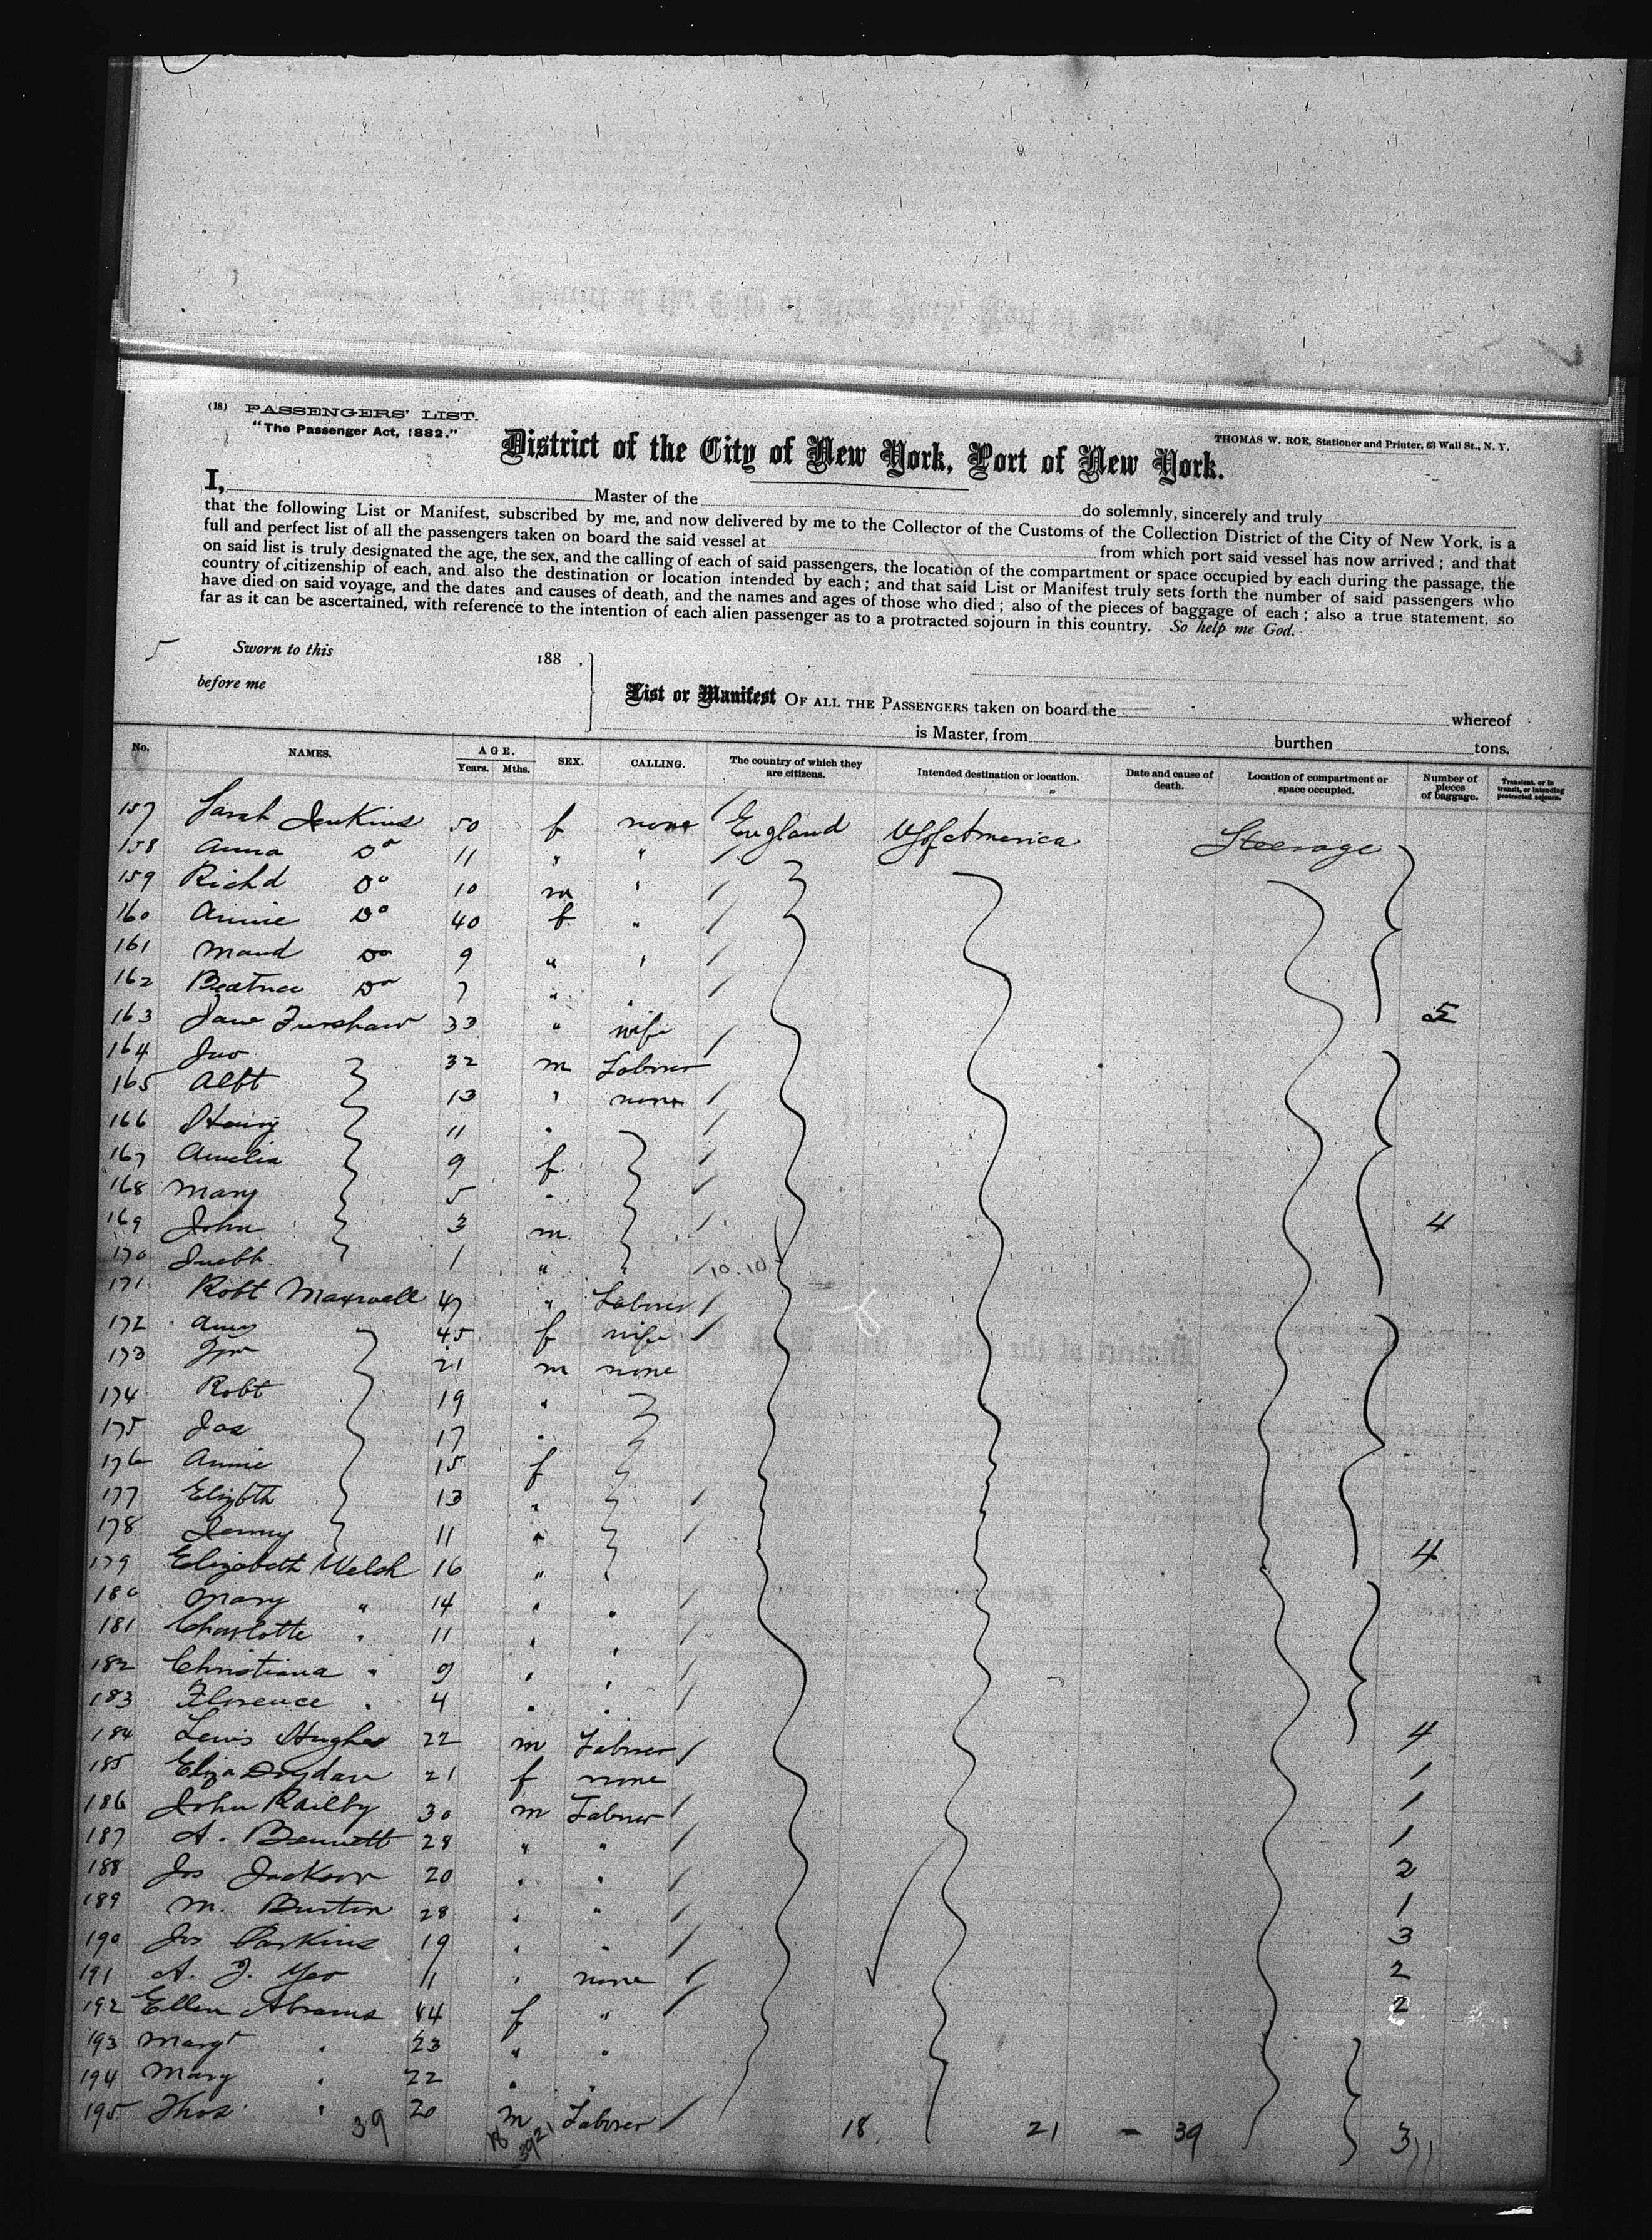 (18) PASSENGERS' LIST.
"The Passenger Act, 1882."
THOMAS W. ROE, Stationer and Printer, 63 Wall St., N. Y.
District of the City of New York, Port of New York.
I, Master of the do solemnly, sincerely and truly
that the following List or Manifest, subscribed by me, and now delivered by me to the Collector of the Customs of the Collection District of the City of New York, is a
full and perfect list of all the passengers taken on board the said vessel at from which port said vessel has now arrived; and that
on said list is truly designated the age, the sex, and the calling of each of said passengers, the location of the compartment or space occupied by each during the passage, the
country of citizenship of each, and also the destination or location intended by each; and that said List or Manifest truly sets forth the number of said passengers who
have died on said voyage, and the dates and causes of death, and the names and ages of those who died; also of the pieces of baggage of each; also a true statement, so
far as it can be ascertained, with reference to the intention of each alien passenger as to a protracted sojourn in this country. So help me God.
5 Sworn to this 188 .
before me
List or Manifest OF ALL THE PASSENGERS taken on board the whereof
is Master, from burthen tons.
No. NAMES. AGE. Years. Mths. SEX. CALLING. The country of which they are citizens. Intended destination or location. Date and cause of death. Location of compartment or space occupied. Number of pieces of baggage. Transient, or in transit, or intending protracted sojourn.
157 Sarah Jenkins 50 f none England US of America Steerage
158 Anna Do 11 " "
159 Richd Do 10 m "
160 Annie Do 40 f "
161 Maud Do 9 " "
162 Beatrice Do 7 " " 5
163 Jane 33 " wife
164 Jno 32 m Labrer
165 Albt 13 " none
166 Henry 11 "
167 Amelia 9 f
168 Mary 5 "
169 John 3 m 4
170 1 " " 10.10
171 Robt Maxwell 47 " Labrer
172 Amy 45 f wife
173 21 m none
174 Robt 19 "
175 Jas 17 "
176 Annie 15 f
177 Elizbth 13 "
178 Jenny 11 " 4
179 Elizabeth Welsh 16 "
180 Mary " 14 " "
181 Charlotte " 11 " "
182 Christiana " 9 " "
183 Florence " 4 " "
184 Lewis Hughes 22 m Labrer 4
185 Eliza 21 f none 1
186 John Railby 30 m Labrer 1
187 A. Bennett 28 " " 1
188 Jos Jackson 20 " " 2
189 M. Burton 28 " " 1
190 Jos Parkins 19 " " 3
191 A. J. Yeo 11 " none 2
192 Ellen Abrams 44 f " 2
193 Margt " 23 " "
194 Mary " 22 " "
195 Thos " 20 m Labrer 3
39 18 39 21 18. 21 - 39